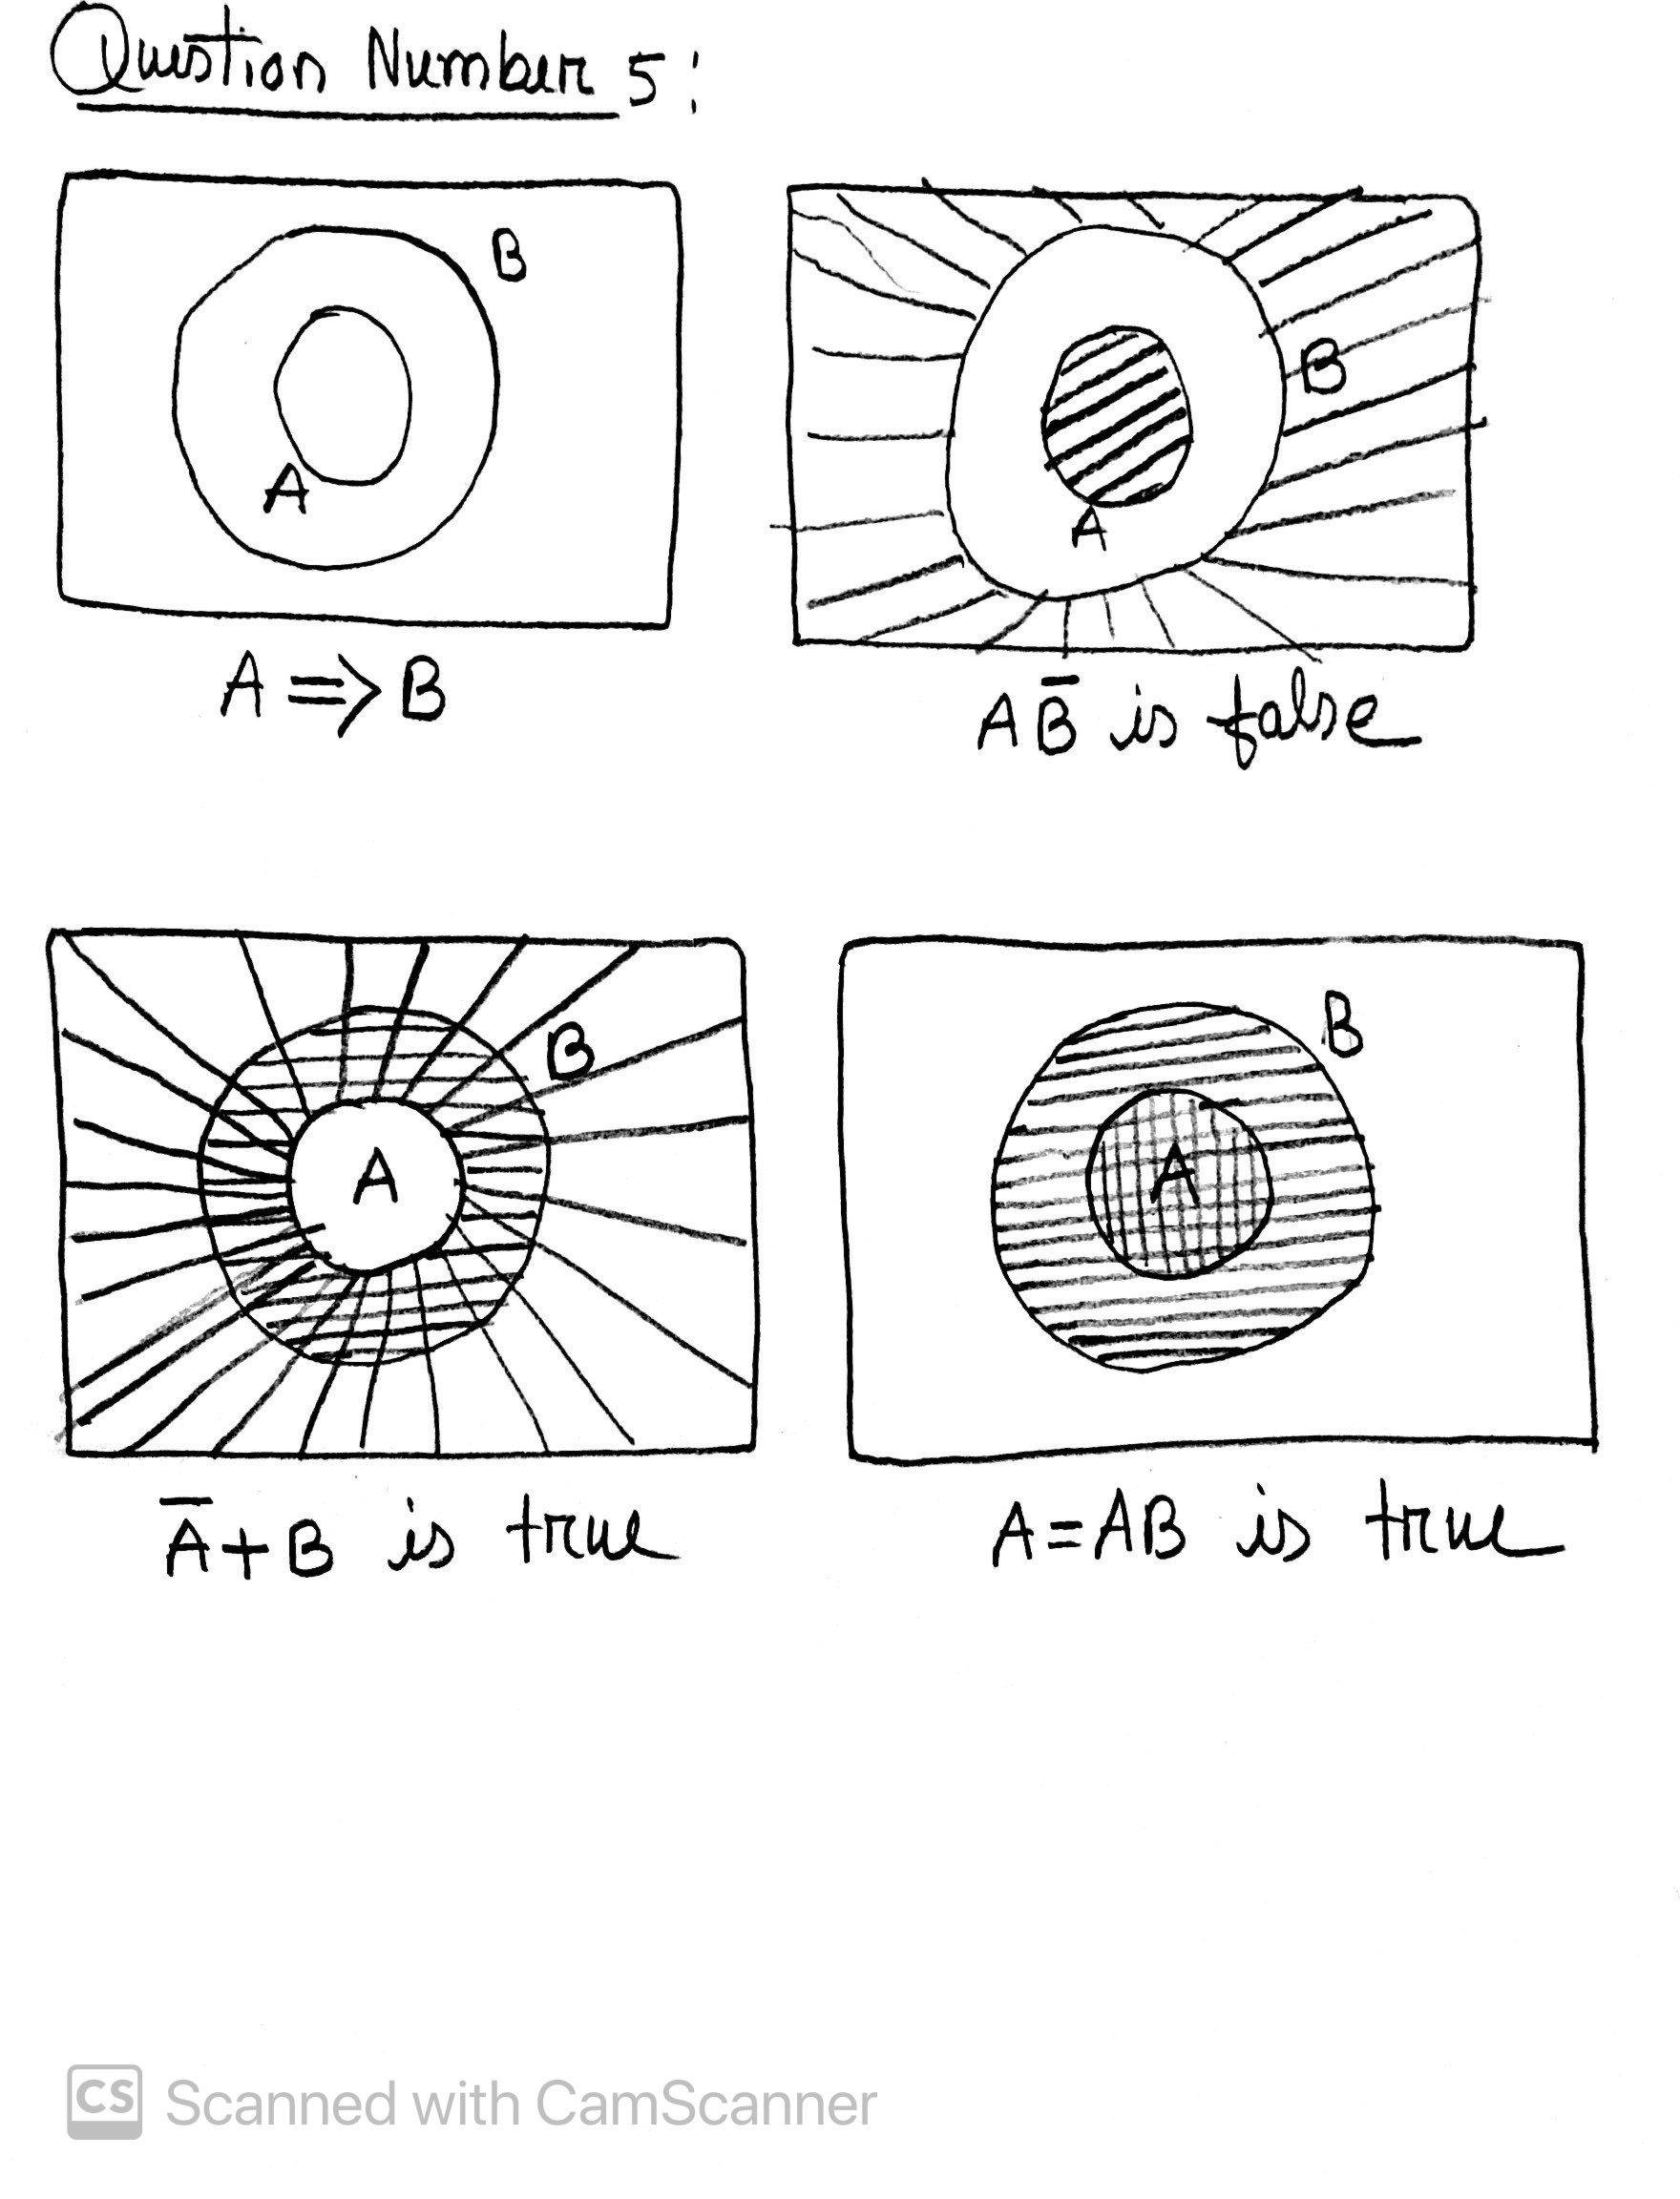 Question Number 5:
B
A
A => B
B
A
AB̅ is false
B
A
A̅+B is true
B
A
A=AB is true
CS Scanned with CamScanner